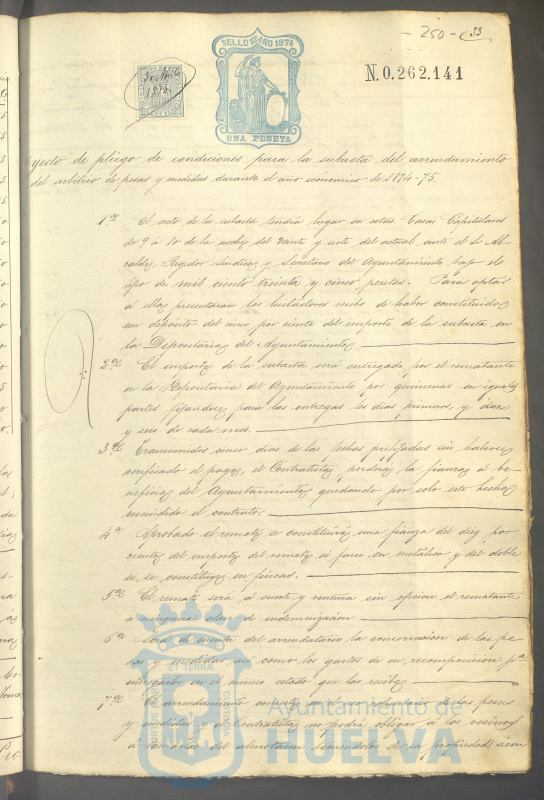 - 250 - 33
SELLO 11º AÑO 1874
N.0.262.141
UNA PESETA
yecto de pliego de condiciones para la subasta del arrendamiento
del arbitrio de pesas y medidas durante el año económico de 1874-75.
1ª El acto de la subasta tendrá lugar en estas Casas Capitulares
de 9 a 10 de la noche del veinte y siete del actual ante el Sr. Al-
calde, Regidor Síndico y Secretario del Ayuntamiento bajo el
tipo de mil ciento treinta y cinco pesetas. Para optar
a ella presentarán los licitadores recibo de haber constituido
un depósito del cinco por ciento del importe de la subasta en
la Depositaria del Ayuntamiento
2ª El importe de la subasta será entregado por el rematante
en la Depositaria del Ayuntamiento por quincenas en iguales
partes fijandose para las entregas los dias primeros, y diez
y seis de cada mes.
3ª Transcurridos cinco dias de las fechas prefijadas sin haberse
verificado el pago, el Contratista perderá la fianza a be-
neficio del Ayuntamiento quedando por solo este hecho
rescindido el contrato.
4ª Aprobado el remate se constituirá una fianza del diez por
ciento del importe del remate si fuere en metálico y del doble
si se constituye en fincas.
5ª El remate será a suerte y ventura sin opcion el rematante
a ninguna clase de indemnizacion
6ª Será de cuenta del arrendatario la conservacion de las pe-
sas y medidas, así como los gastos de su recomposicion pª
entregarlas en el mismo estado que las recibe
7ª El arrendamiento de las pesas
y medidas el Contratista no podrá obligar a los vecinos
a tomarlas del almotacen teniendolas de su propiedad, sien
ET TERRÆ
Ayuntamiento de
HUELVA